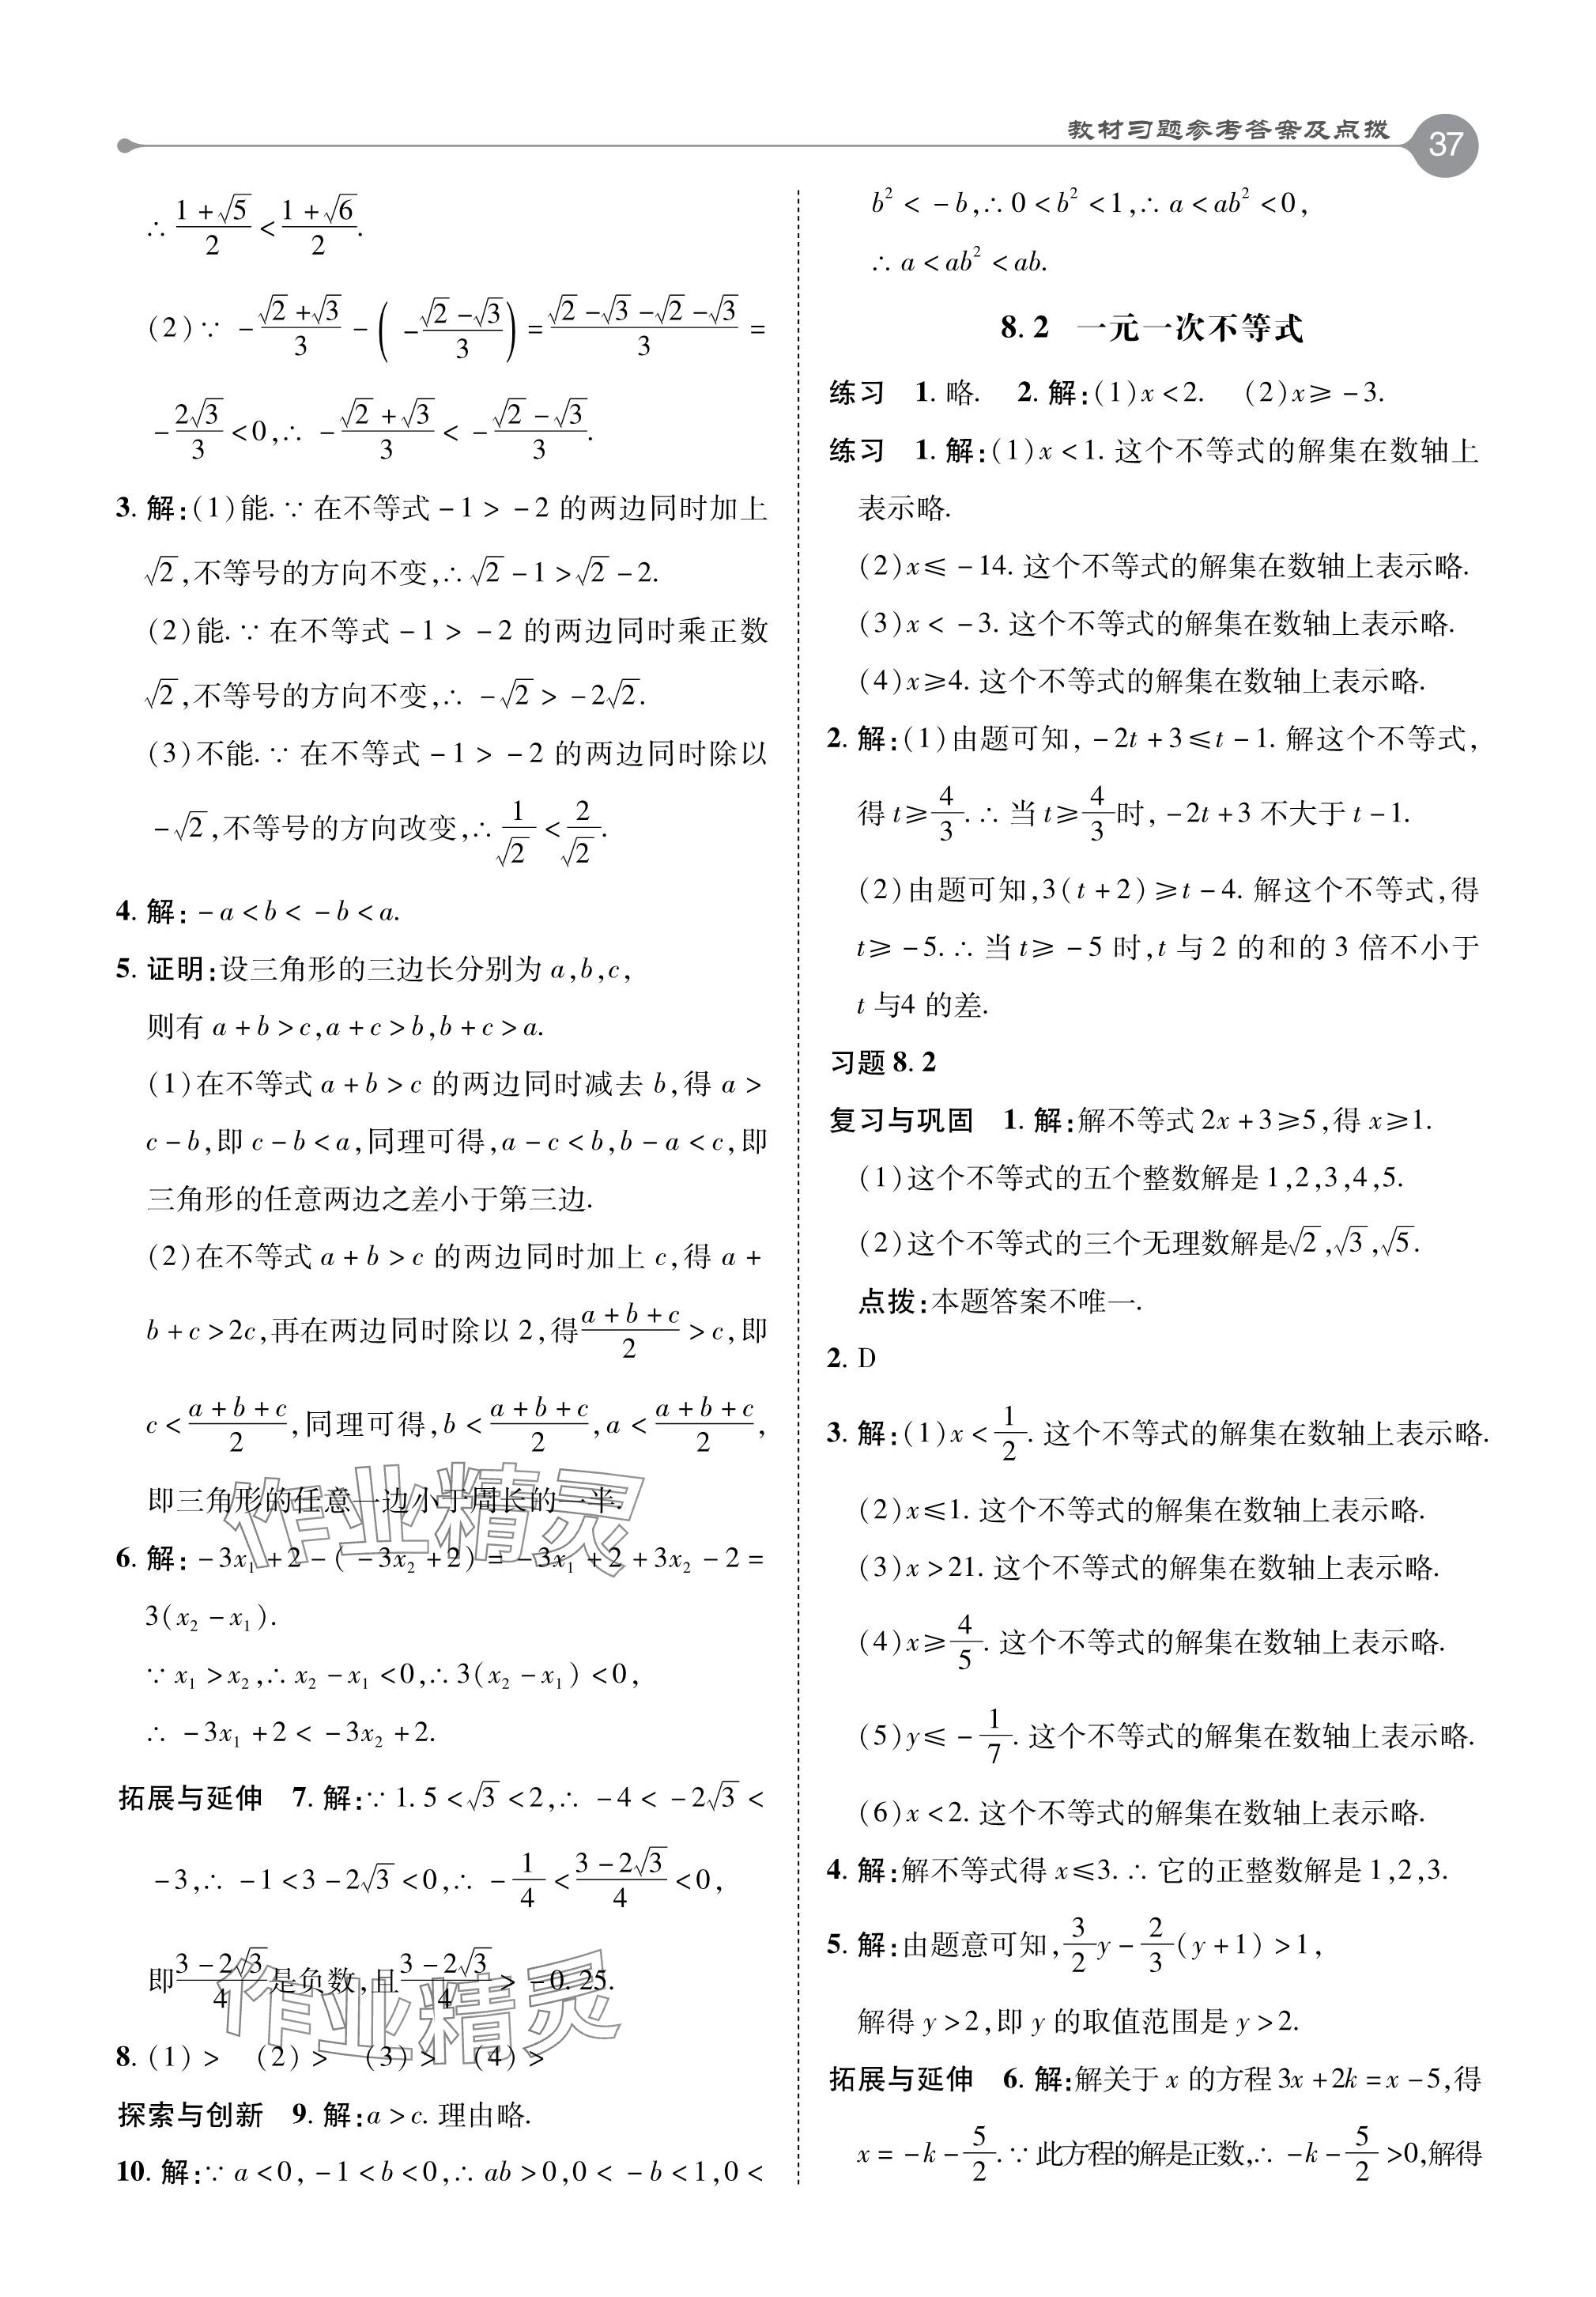 教材习题参考答案及点拨 37
∴ (1+√5)/2 < (1+√6)/2.
(2)∵ -(√2+√3)/3 - (-(√2-√3)/3) = (√2-√3-√2-√3)/3 =
-2√3/3 <0,∴ -(√2+√3)/3 < -(√2-√3)/3.
3. 解:(1)能.∵ 在不等式 -1 > -2 的两边同时加上
√2,不等号的方向不变,∴ √2 -1 > √2 -2.
(2)能.∵ 在不等式 -1 > -2 的两边同时乘正数
√2,不等号的方向不变,∴ -√2 > -2√2.
(3)不能.∵ 在不等式 -1 > -2 的两边同时除以
-√2,不等号的方向改变,∴ 1/√2 < 2/√2.
4. 解: -a < b < -b < a.
5. 证明:设三角形的三边长分别为 a,b,c,
则有 a+b>c,a+c>b,b+c>a.
(1)在不等式 a+b>c 的两边同时减去 b,得 a>
c-b,即 c-b<a,同理可得,a-c<b,b-a<c,即
三角形的任意两边之差小于第三边.
(2)在不等式 a+b>c 的两边同时加上 c,得 a+
b+c>2c,再在两边同时除以 2,得(a+b+c)/2 >c,即
c<(a+b+c)/2,同理可得,b<(a+b+c)/2,a<(a+b+c)/2,
即三角形的任意一边小于周长的一半.
6. 解: -3x₁+2-(-3x₂+2)= -3x₁+2+3x₂-2=
3(x₂-x₁).
∵ x₁>x₂,∴ x₂-x₁<0,∴ 3(x₂-x₁)<0,
∴ -3x₁+2< -3x₂+2.
拓展与延伸 7. 解:∵ 1.5<√3<2,∴ -4< -2√3<
-3,∴ -1<3-2√3<0,∴ -1/4<(3-2√3)/4<0,
即(3-2√3)/4是负数,且(3-2√3)/4> -0.25.
8. (1)> (2)> (3)> (4)>
探索与创新 9. 解:a>c. 理由略.
10. 解:∵ a<0, -1<b<0,∴ ab>0,0< -b<1,0<
b²< -b,∴ 0<b²<1,∴ a<ab²<0,
∴ a<ab²<ab.
8.2 一元一次不等式
练习 1. 略. 2. 解:(1)x<2. (2)x≥ -3.
练习 1. 解:(1)x<1. 这个不等式的解集在数轴上
表示略.
(2)x≤ -14. 这个不等式的解集在数轴上表示略.
(3)x< -3. 这个不等式的解集在数轴上表示略.
(4)x≥4. 这个不等式的解集在数轴上表示略.
2. 解:(1)由题可知, -2t+3≤t-1. 解这个不等式,
得 t≥4/3.∴ 当 t≥4/3时, -2t+3 不大于 t-1.
(2)由题可知,3(t+2)≥t-4. 解这个不等式,得
t≥ -5.∴ 当 t≥ -5 时,t 与 2 的和的 3 倍不小于
t 与4 的差.
习题8.2
复习与巩固 1. 解:解不等式 2x+3≥5,得 x≥1.
(1)这个不等式的五个整数解是 1,2,3,4,5.
(2)这个不等式的三个无理数解是√2,√3,√5.
点拨:本题答案不唯一.
2. D
3. 解:(1)x<1/2. 这个不等式的解集在数轴上表示略.
(2)x≤1. 这个不等式的解集在数轴上表示略.
(3)x>21. 这个不等式的解集在数轴上表示略.
(4)x≥4/5. 这个不等式的解集在数轴上表示略.
(5)y≤ -1/7. 这个不等式的解集在数轴上表示略.
(6)x<2. 这个不等式的解集在数轴上表示略.
4. 解:解不等式得 x≤3.∴ 它的正整数解是 1,2,3.
5. 解:由题意可知,3/2y-2/3(y+1)>1,
解得 y>2,即 y 的取值范围是 y>2.
拓展与延伸 6. 解:解关于 x 的方程 3x+2k=x-5,得
x= -k-5/2.∵ 此方程的解是正数,∴ -k-5/2>0,解得
作业精灵
作业精灵